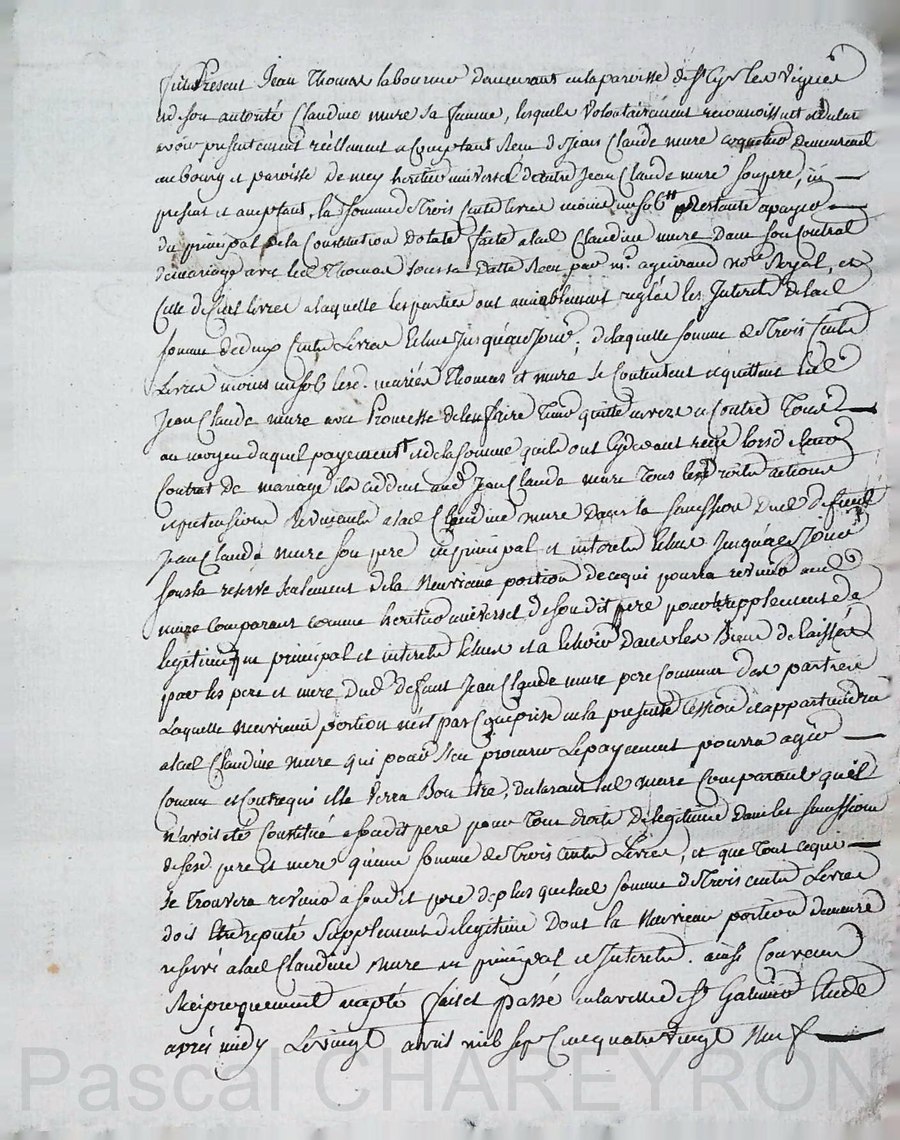 fut Présent Jean Thomas laboureur demeurant en la paroisse de St Cyr les vignes
et de son autorité Claudine mure sa femme, lesquels volontairement reconnoissent et
avoir presentement réellement et Comptant Receu de Jean Claude mure coquetier demeurant
au bourg et paroisse de heritier universel de autre Jean Claude mure son pere, ici
present et acceptant, la somme de Trois Cents livres moins un sol Restante a payer
du principal de la Constitution dotale faite a lad Claudine mure Dans son Contrat
de mariage avec led Thomas sous sa datte Receu par me no.re Royal, et
Celle de livres a laquelle les parties ont amiablement reglés les Interets de lad
somme de deux Cents Livres Echus Jusqu'à ce Jour; de laquelle somme de Trois Cents
Livres moins un sol lesd. mariés Thomas et mure se Contentent et quittent led
Jean Claude mure avec Promesse de l'en faire Tenir quitte envers et Contre Tous
au moyen duquel payement et de la somme qu'ils ont cy devant reçu lors de leur
Contrat de mariage ils cedent aud. Jean Claude mure Tous les droits actions
et pretensions Revenants a lad Claudine mure Dans la succession dud. defunt
Jean Claude mure son pere en principal et interets Echus Jusqu'à ce Jour
sous la reserve seulement de la Neuvieme portion de ce qui pourra revenir aud
mure comparant comme heritier universel de son dit pere pour supplement de
legitime en principal et interets Echus et a Echoir Dans les Biens delaissés
par les pere et mere dud. defunt Jean Claude mure pere commun des parties
Laquelle Neuvieme portion n'est pas Comprise en la presente Cession et appartiendra
a lad Claudine mure qui pour s'en procurer Le payement pourra agir
Comme et Contre qui elle Verra Bon Etre, declarant led mure Comparant qu'il
n'avoit été Constitué a son dit pere pour Tous droits de legitime dans les successions
de ses pere et mere qu'une somme de Trois cents Livres, et que Tout ce qui
se Trouvera revenir a son dit pere de plus que lad somme de Trois cents Livres
doit Etre reputé Supplement de legitime Dont la Neuvieme portion demeure
reservé a lad Claudine mure en principal et Interets. ainsi Convenu
Reciproquement accepté fait et passé en la ville de St Galmier Etude
après midy Le vingt avril mil sept Cent quatre vingt Neuf
Pascal CHAREYRON